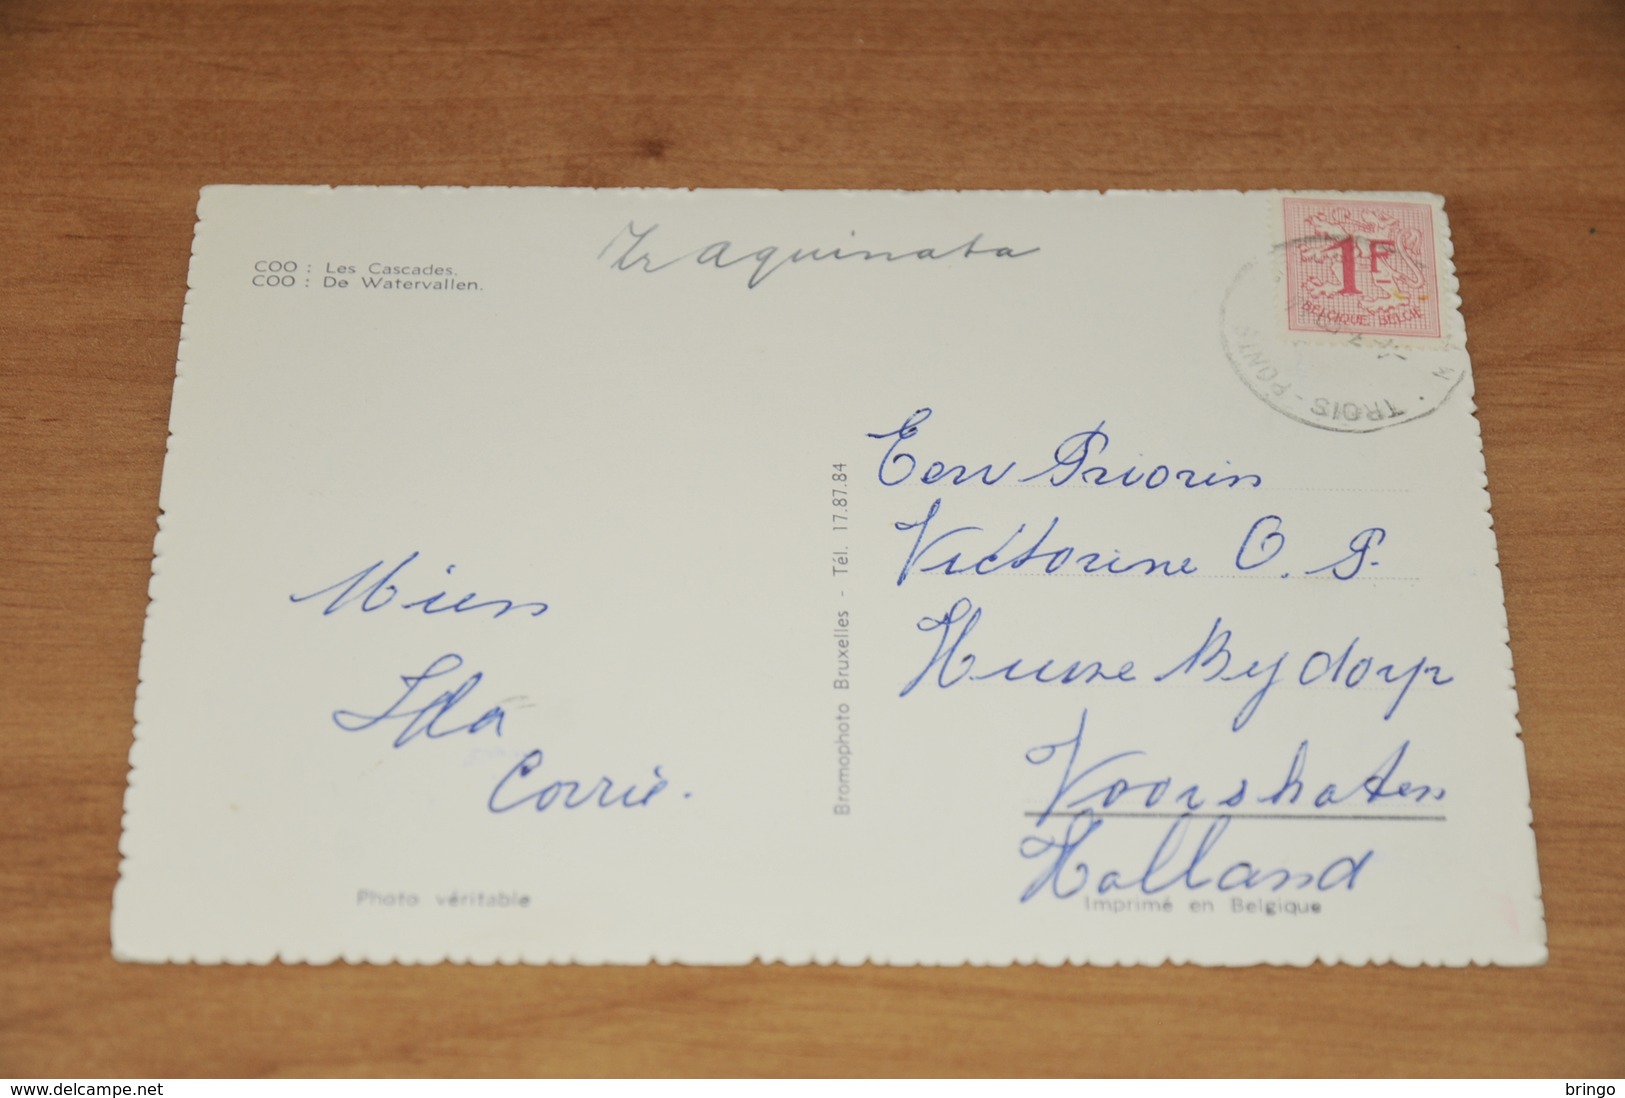 COO : Les Cascades.
COO : De Watervallen.
Zr Aquinata
1F
BELGIQUE BELGIE
TROIS-PONTS
Mien
Ida
Corrie.
Bromophoto Bruxelles - Tél. 17.87.84
Eerw Priorin
Victorine O. P.
Huize Bijdorp
Voorshoten
Holland
Photo véritable
Imprimé en Belgique
www.delcampe.net
bringo